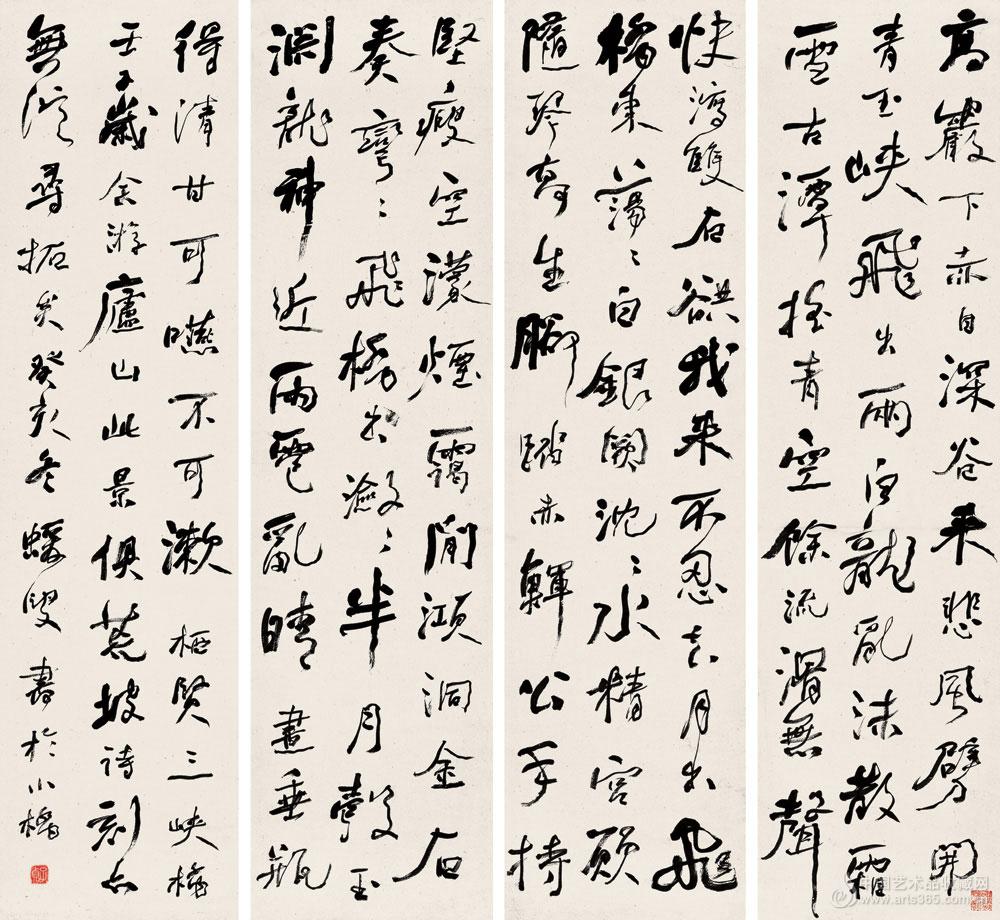 高巖下赤日深谷来悲風劈開
青玉峽飛出兩白龍亂沫散霜
雪古潭搖青空餘流滑無聲
快瀉雙石谼我来不忍去月出飛
橋東蕩々白銀闕沈々水精宮願
隨琴高生脚踏赤鯶公手持
堅瘦空濛煙靄間澒洞金石
奏彎々飛橋出瀲々半月彀玉
淵龍神近雨雹亂晴晝垂瓶
得清甘可嚥不可漱 栖賢三峽橋
壬子歲余游廬山此景俱荒坡詩刻亦
無從尋拓矣癸亥冬蝯叟書於小
中国艺术品收藏网
www.arts365.com.cn